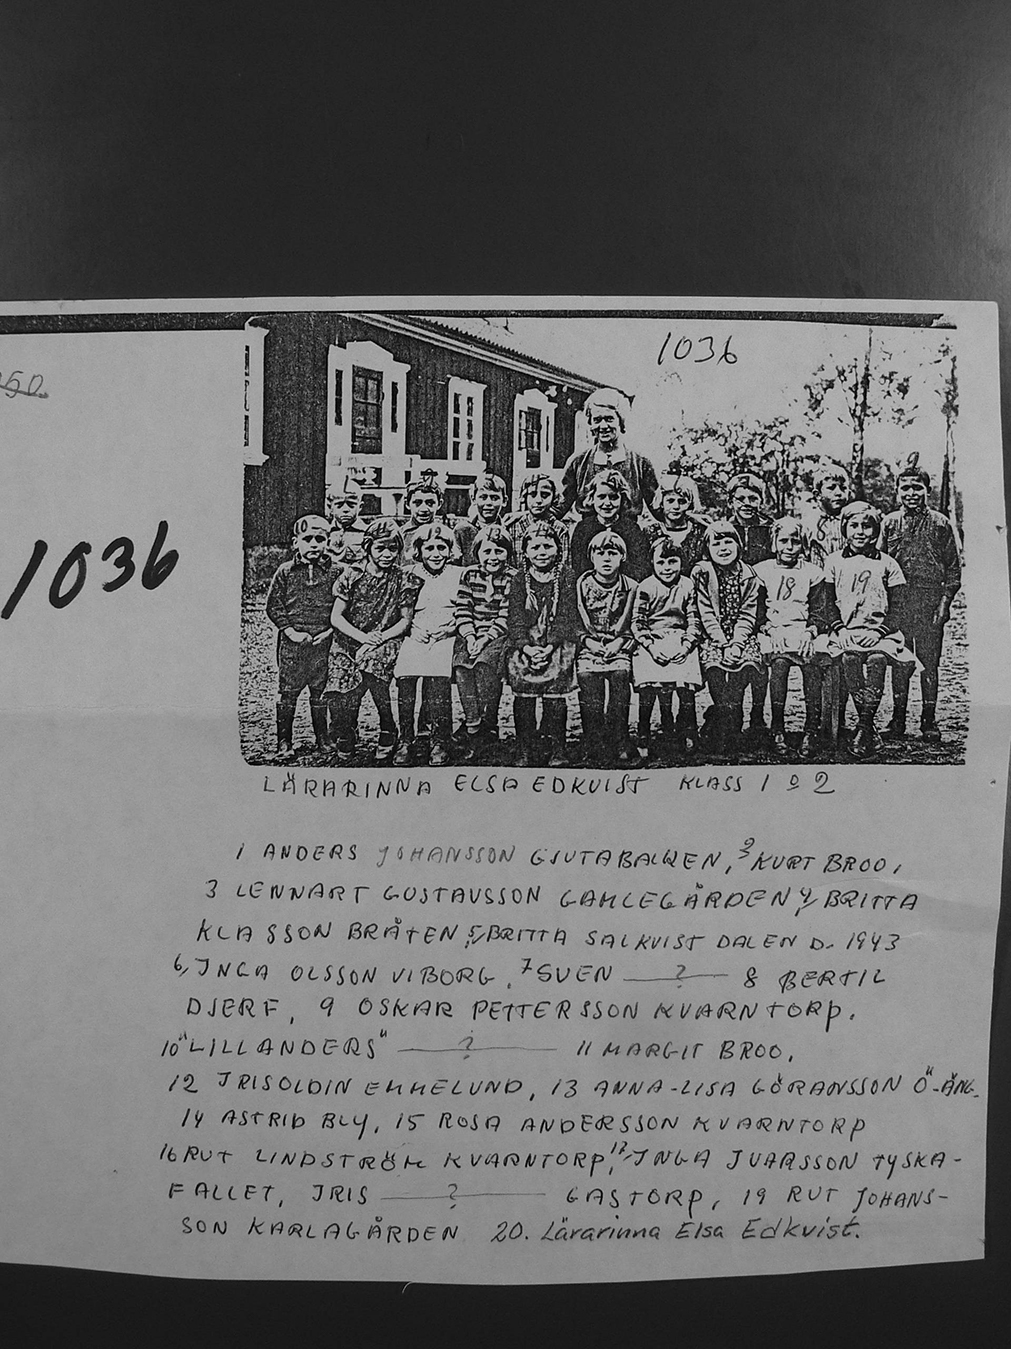 1036
1036
9
10
18
19
LÄRARINNA ELSA EDKVIST KLASS 1 o 2
1 ANDERS JOHANSSON GJUTABALKEN, 2 KURT BROO,
3 LENNART GUSTAVSSON GAMLEGÅRDEN 4, BRITTA
KLASSON BRÅTEN 5, BRITTA SALKVIST DALEN D. 1943
6, INGA OLSSON VIBORG, 7 SVEN — ? — 8 BERTIL
DJERF, 9 OSKAR PETTERSSON KVARNTORP.
10 "LILLANDERS" — ? — 11 MARGIT BROO,
12 IRISOLDIN EMMELUND, 13 ANNA-LISA GÖRANSSON Ö-ÄNG.
14 ASTRID BLY, 15 ROSA ANDERSSON KVARNTORP
16 RUT LINDSTRÖM KVARNTORP, 17, INGA IVARSSON TYSKA-
FALLET, IRIS — ? — GASTORP, 19 RUT JOHANS-
SON KARLAGÅRDEN 20. Lärarinna Elsa Edkvist.